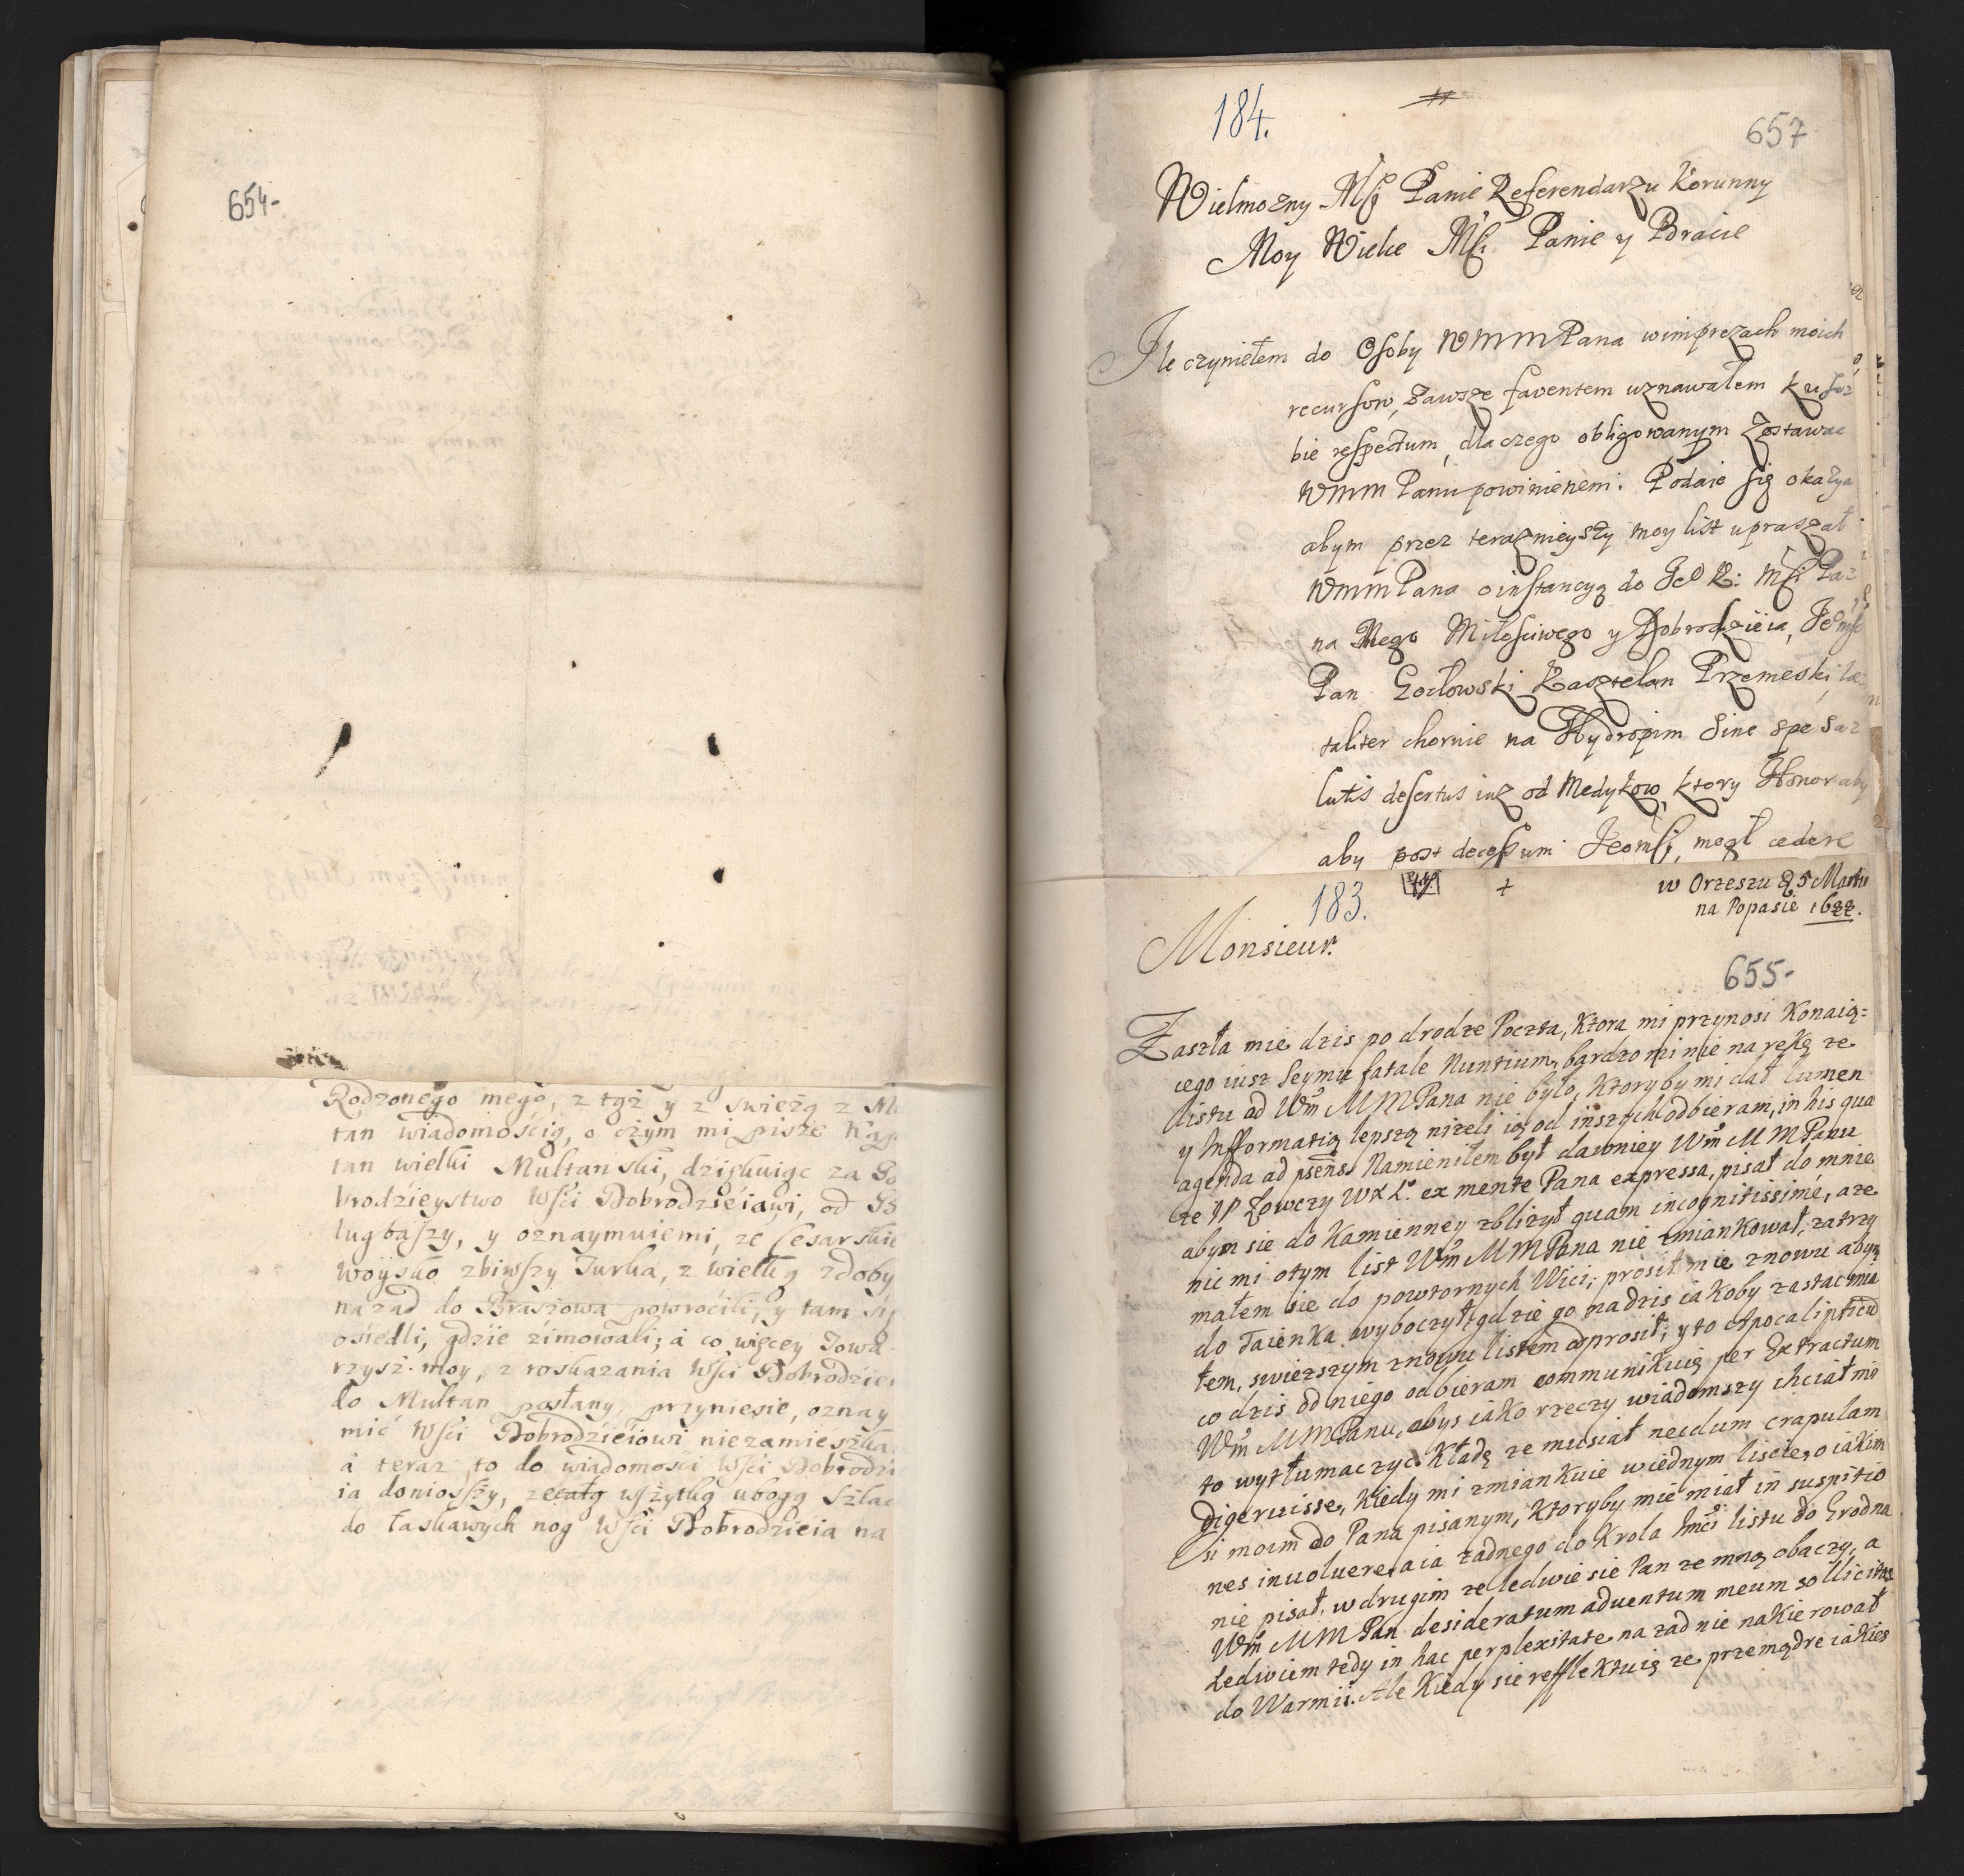 654-
Rodzonego mego, z tgż y z swieżą z
tan wiadomością, o czym mi pisze
tan wielki Multanski, dziękuiąc za
brodzieystwo Wści Dobrodzieiawi, od
lugbaszy, y oznaymuiemi, ze Cesarskie
woysko zbiwszy Turka, z wielką zdoby
nazad do Braszowa powrocili, y tam
osiedli, gdzie zimowali; á co więcey Towa
rzysz moy, z roskazania Wści Dobrodzie
do Multan posłany, przyniesie, oznay
mić Wści Dobrodzieiowi niezamieszka
á teraz to do wiadomości Wści Dobrodzi
ia doniosszy, wszytką ubogą
do łaskawych nog Wści Dobrodzieia na
184.
657
Wielmozny Mśći Panie Referendarzu Korunny
Moy Wielce Mśći Panie y Bracie
Ile czyniełem do Osoby WMMPana wimprezach moich
recursow, zawsze faventem uznawałem ku so
bie respectum, dla czego obligowanym zostawac
WMM Panu powinienem. Podaie się okazya
abym przez teraznieyszy moy list upraszał
WMMPana o instancyą do Je K: Mśći Pa
na Mego Miłosciwego y Dobrodzieia,
Pan Kasztelan Przemeski
taliter choruie na Hydropim sine spe sa
lutis desertus iuz od Medykow, ktory Honor aby
aby post decessum Jeomśći, mogł cedere
183.
w Orzeszu 25 Martii
na Popasie 1688.
Monsieur.
655-
Zaszła mie dzis po drodze Poczta, Ktora mi przynosi Konaią=
cego iusz Seymu fatale Nuntium, bardzo mi nie na rękę ze
listu od Wm MMPana nie było, Ktoryby mi dał lumen
y Infformatią lepszą nizeli ią od inszych odbieram, in his qua
agenda ad psens. Namieniłem był dawniey Wm M MPanu
ze JP Łowczy WXL. ex mente Pana expressa, pisał do mnie
abym sie do Kamienney zblizył quam incognitissimé, a ze
nic mi otym list Wm MMPana nie zmiankował, zatrzy
małem sie do powtornych Wici; prosił mie znowu abym
do Taienka wyboczył, gdzie go na dzis iakoby zastac
tem, swiezszym znowu listem odprosił; y to
co dzis od niego odbieram communikuię per Extractum
Wm MMPanu, abys iako rzeczy wiadomszy chciał mie
to wytłumaczyc. Kładę ze musiał necdum crapulam
digeruisse, Kiedy mi zmiankuie wiednym liscie, o iakim
si moim do Pana pisanym, Ktoryby mie miał in suspitio
nes inuoluere, a ia zadnego do Krola Jmći listu do Grodna
nie pisał, w drugim ze ledwie sie Pan ze mną obaczy, a
Wm MM Pan desideratum aduentum meum sollicitas
Ledwiem tedy in hac perplexitate na zad nie nakierował
do Warmii. Ale Kiedy sie refflektuię ze przemądre iakies